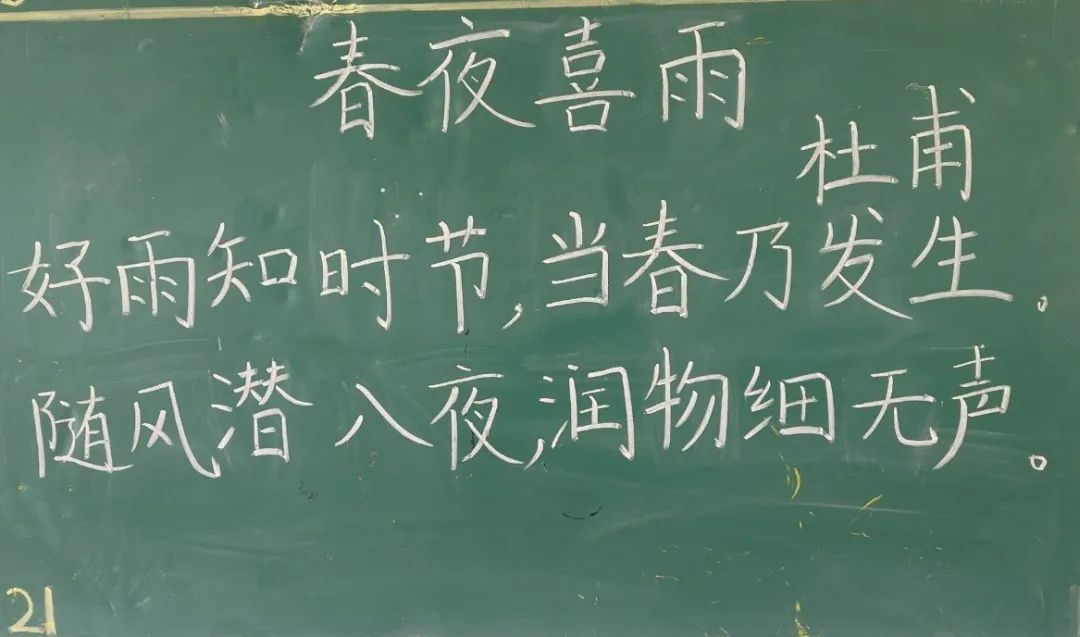 春夜喜雨
杜甫
好雨知时节,当春乃发生。
随风潜八夜,润物细无声。
21